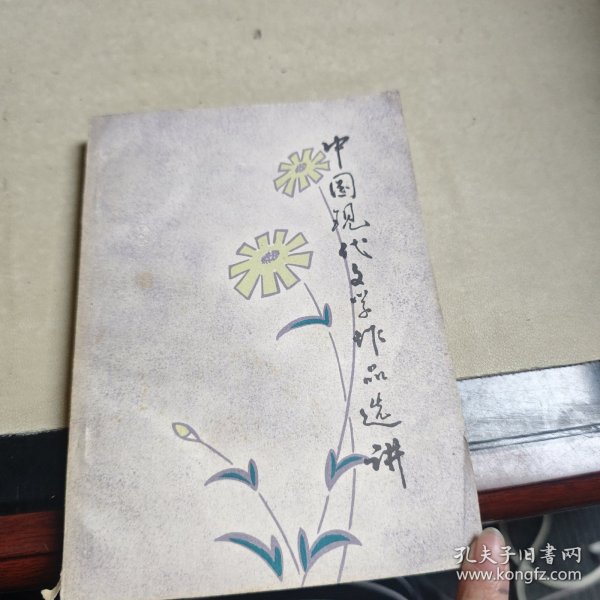 中国现代文学作品选讲
孔夫子旧书网
www.kongfz.com